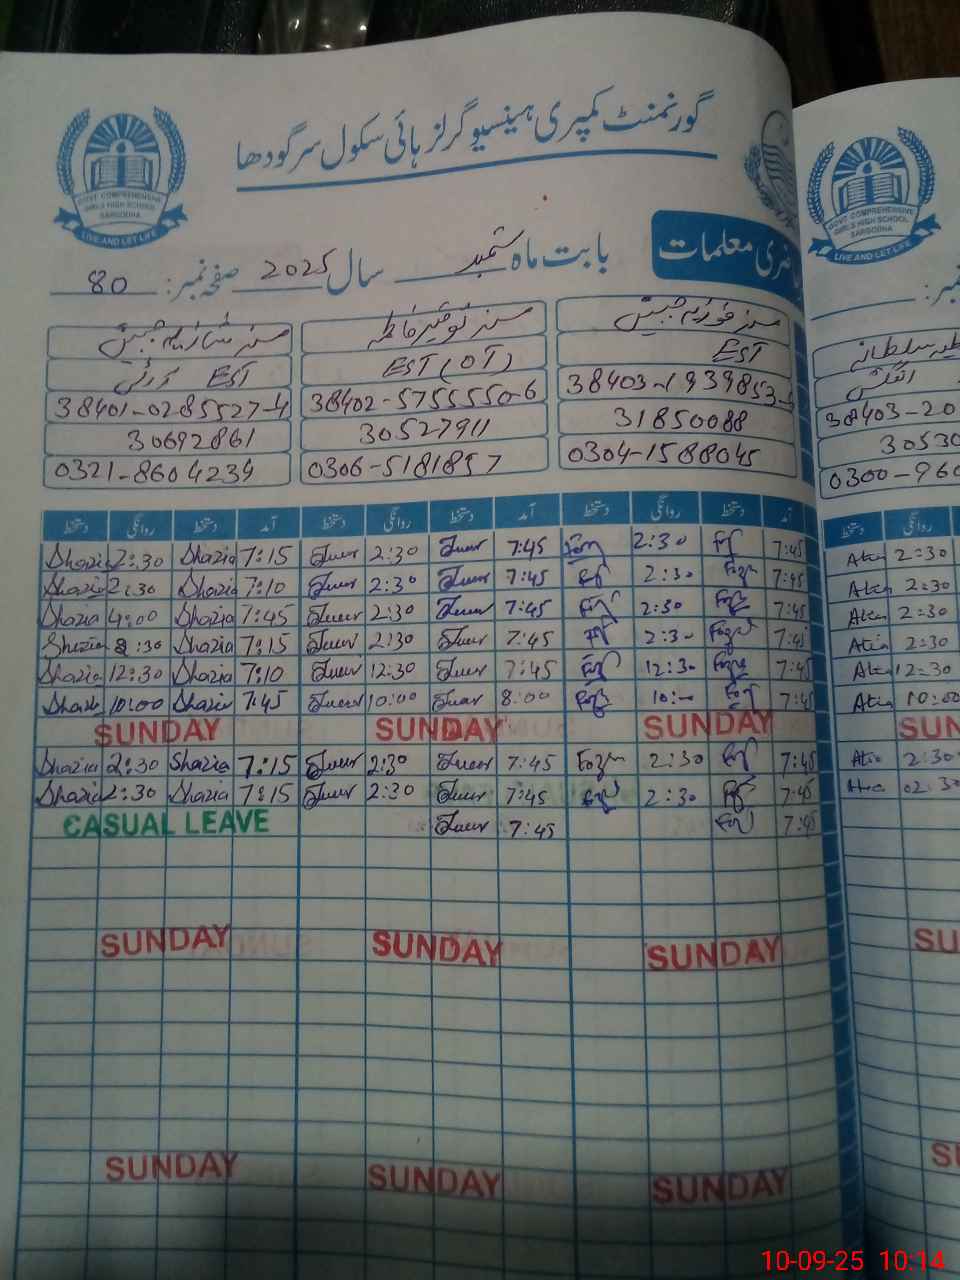 گورنمنٹ کمپری ہینسیو گرلز ہائی سکول سرگودھا
GOVT COMPREHENSIVE
GIRLS HIGH SCHOOL
SARGODHA
LIVE AND LET LIFE
GOVT COMPREHENSIVE
GIRLS HIGH SCHOOL
SARGODHA
LIVE AND LET LIFE
ضری معلمات
بابت ماہ ستمبر سال 2025 صفحہ نمبر: 80
مسز فوزیہ جبیں مسز توقیر فاطمہ مسز شازیہ جبیں
EST EST (OT) EST
38403-1939853- 38402-5755550-6 38401-0285527-4 38403-20
31850088 30527911 30692861 3053
0304-1588045 0306-5181857 0321-8604234 0300-960
آمد دستخط روانگی دستخط آمد دستخط روانگی دستخط آمد دستخط روانگی دستخط روانگی دستخط
Shazia 2:30 Shazia 7:15 2:30 7:45 2:30 7:45 Atia 2:30
Shazia 2:30 Shazia 7:10 2:30 7:45 2:30 7:45 Atia 2:30
Shazia 4:00 Shazia 7:45 2:30 7:45 2:30 7:45 Atia 2:30
Shazia 2:30 Shazia 7:15 2:30 7:45 2:30 7:45 Atia 2:30
Shazia 12:30 Shazia 7:10 12:30 7:45 12:30 7:45 Atia 12:30
Shazia 10:00 Shazia 7:45 10:00 8:00 10:00 7:45 Atia 10:00
SUNDAY SUNDAY SUNDAY SUN
Shazia 2:30 Shazia 7:15 2:30 7:45 2:30 7:45 Atia 2:30
Shazia 2:30 Shazia 7:15 2:30 7:45 2:30 7:45 02:30
CASUAL LEAVE 7:45 7:45
SUNDAY SUNDAY SUNDAY SU
SUNDAY SUNDAY SUNDAY S
10-09-25 10:14